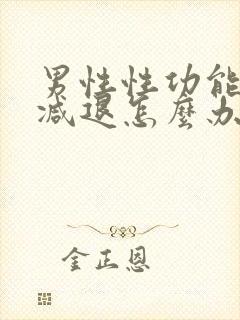 男性性功能
减退怎麼办
金正恩